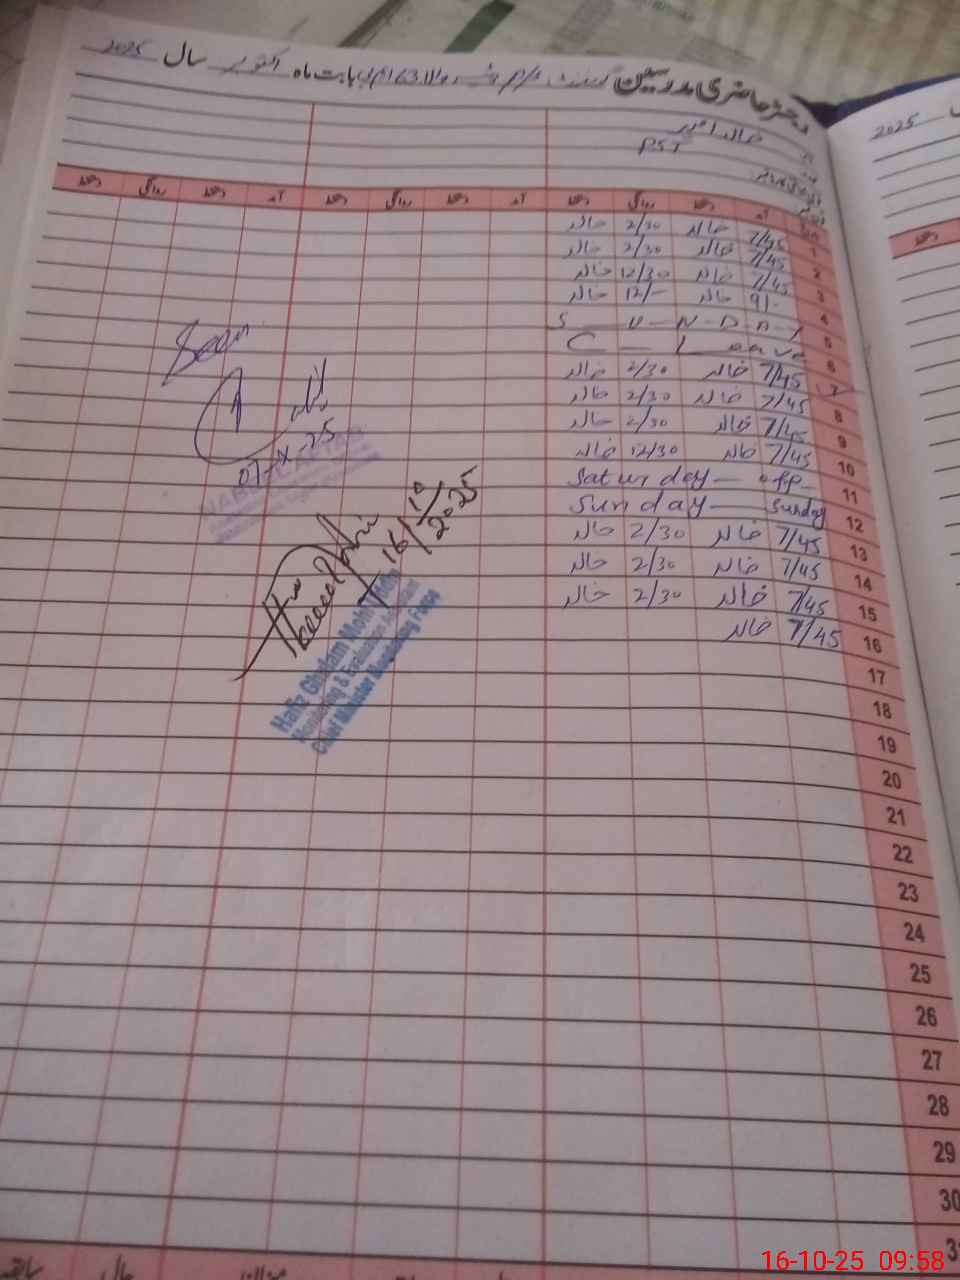 رجسٹر حاضری مدرسین گورنمنٹ P/S والا 63 بابت ماہ اکتوبر سال 2025
2025
خالد
PST
آمد دستخط روانگی دستخط آمد دستخط روانگی دستخط آمد دستخط روانگی دستخط
1 7/45 خالد 2/30 خالد
2 7/45 خالد 2/30 خالد
3 7/45 خالد 12/30 خالد
4 9/- خالد 12/- خالد
5 S-U-N-D-A-Y
6 C-Leave
7 7/45 خالد 2/30 خالد
8 7/45 خالد 2/30 خالد
9 7/45 خالد 2/30 خالد
10 7/45 خالد 12/30 خالد
11 Saturday - off -
12 Sunday - Sunday
13 7/45 خالد 2/30 خالد
14 7/45 خالد 2/30 خالد
15 7/45 خالد 2/30 خالد
16 7/45 خالد
17
18
19
20
21
22
23
24
25
26
27
28
29
30
31
Seen
07-X-25
16/10/2025
Hafiz Ghulam Mohy
Monitoring & Evaluation Assistant
Chief Minister Monitoring Force
میزان حال سابقہ
16-10-25 09:58